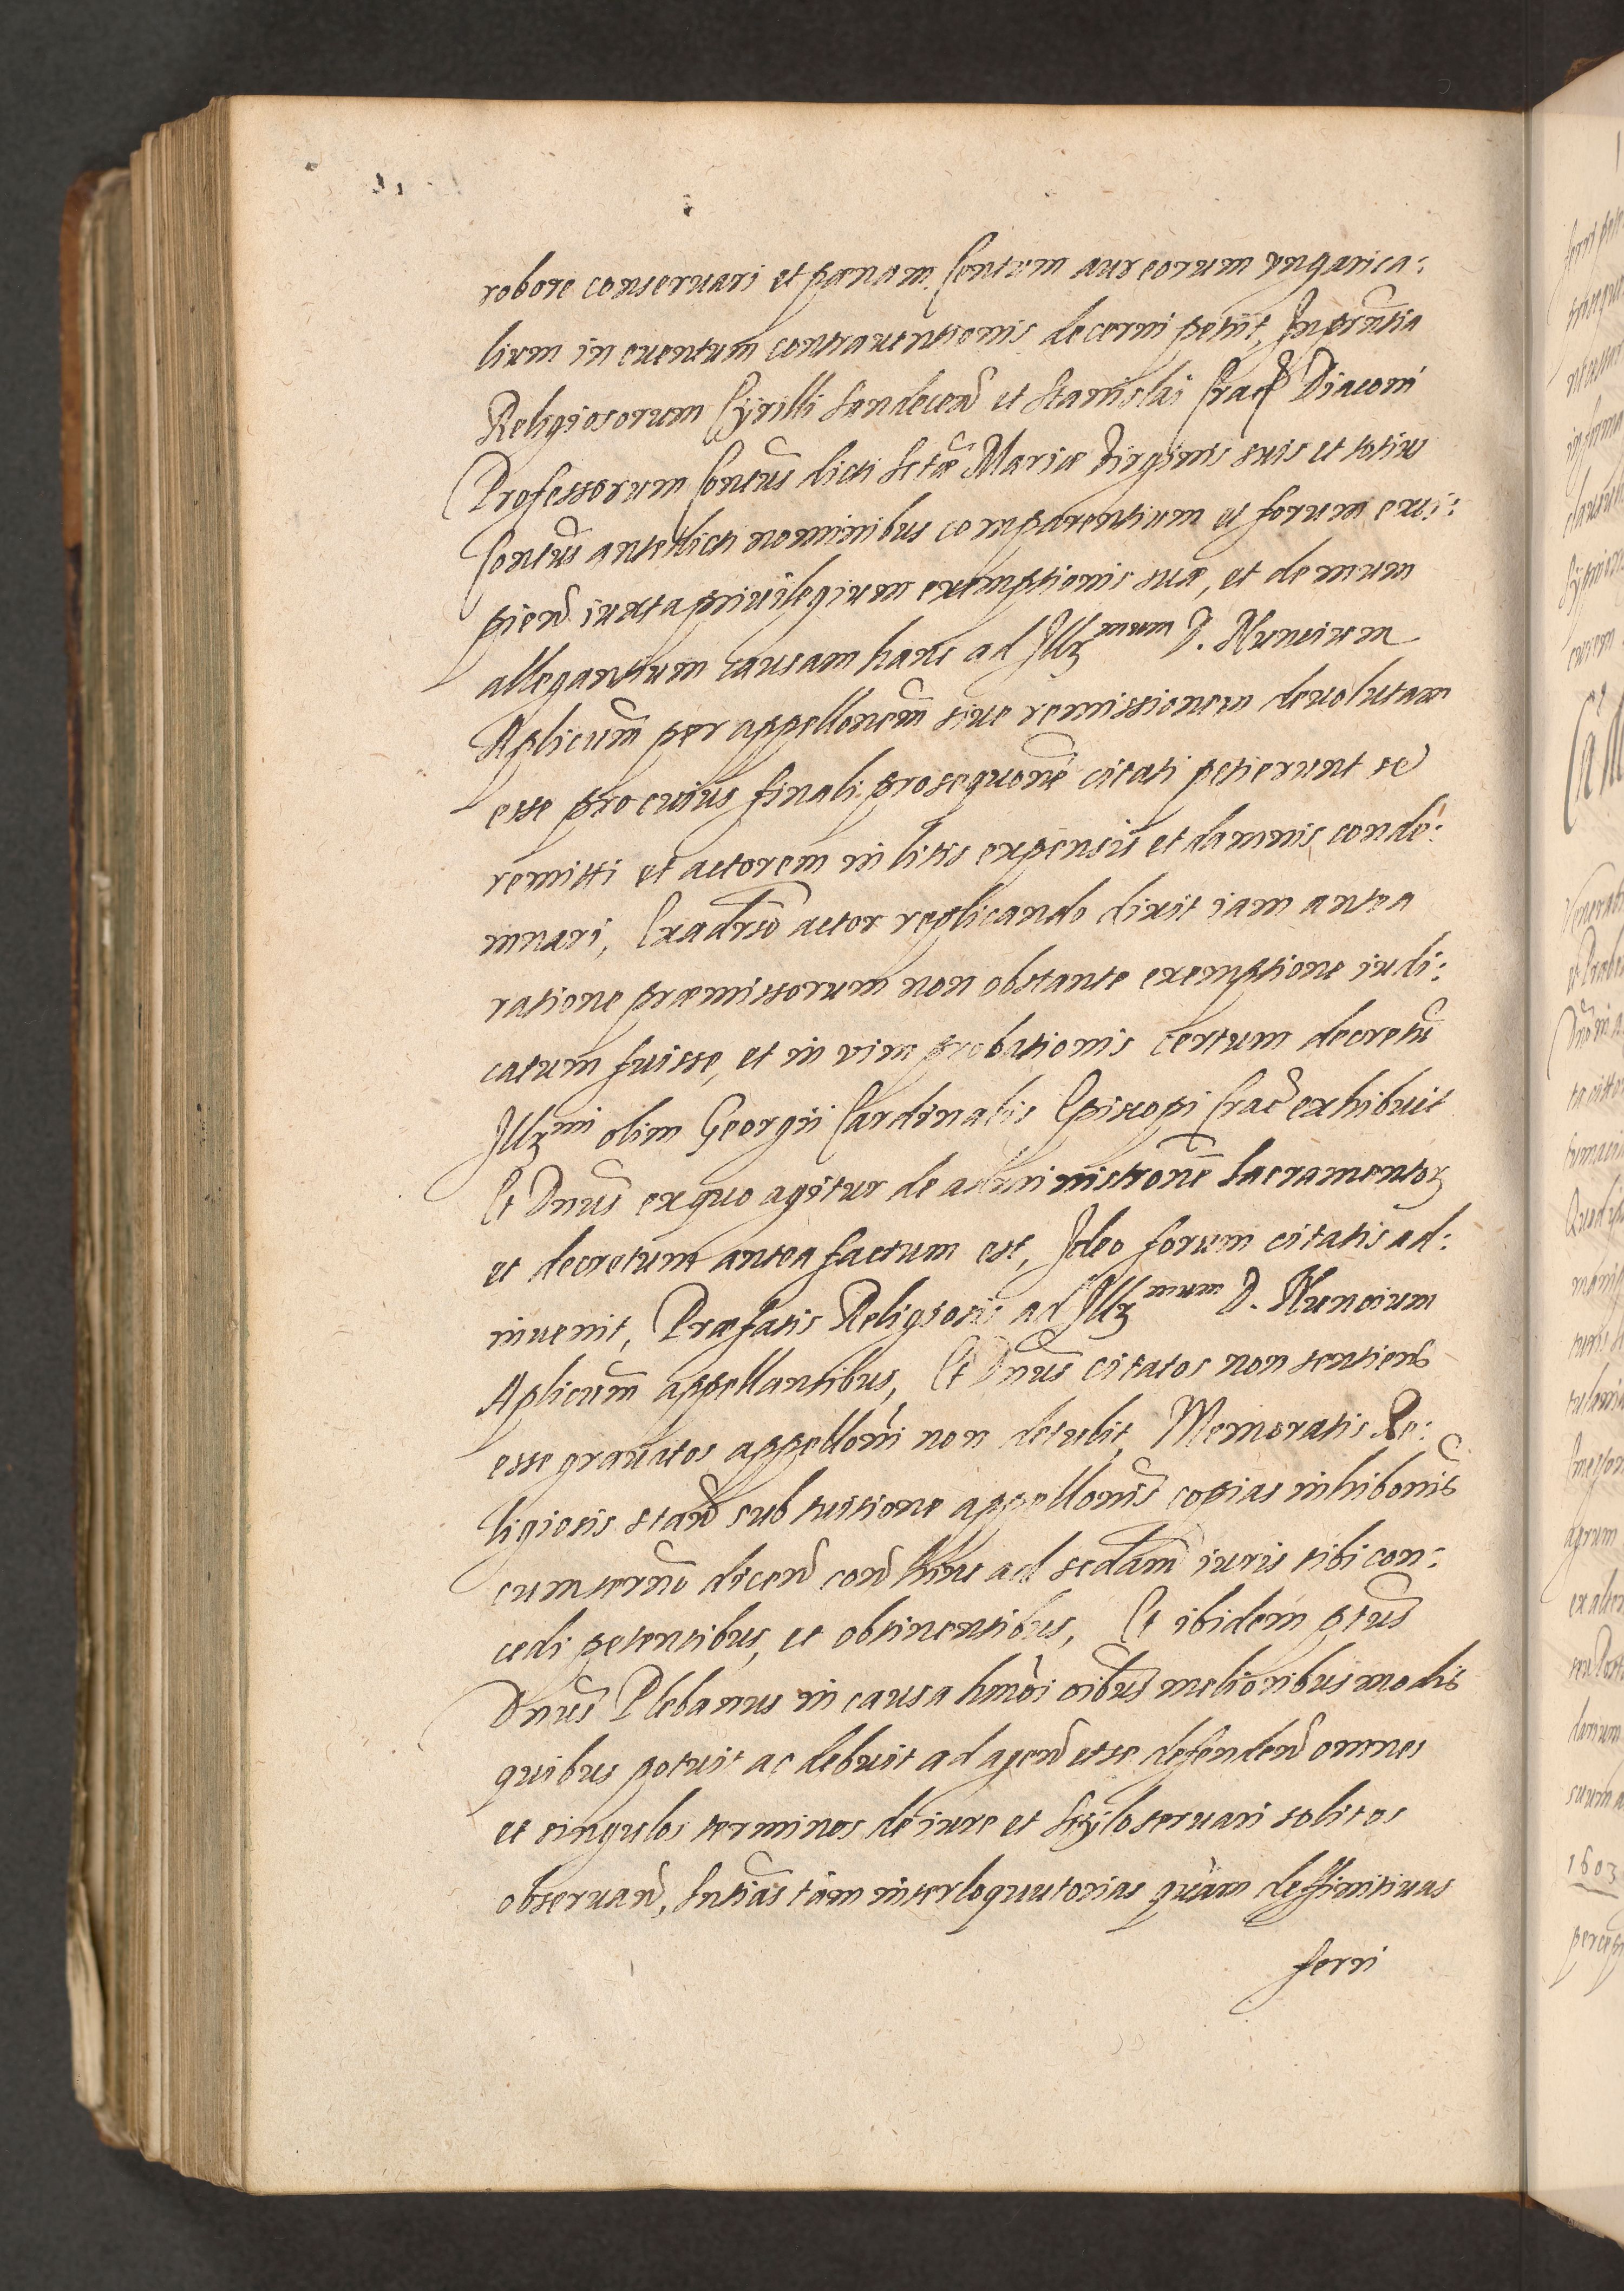 robore conseruari et pænam Centum aureorum vngarica:
lium in euentum contrauentionis decerni petijt, In pñtia
Religiosorum Cyrilli Sandeceñ et Stanislai Crac̃ Diaconi
Professorum Conũus dicti Sctæ Mariæ Virginis suis et totius
Conũus antedicti nominibus comparentium et forum exci:
pieñ iuxta priuilegium exemptionis suæ, et demum
allegantium causam hanc ad Illr̃mum D. Nuncium
Aplicum̃ per appellonem̃ siue remissionem deuolutam
esse pro cuius finali prosequone̅ citati petierunt se
remitti et actorem in litis expensis et damnis conde̅:
mnari, Ex adr̃so actor replicando dixit iam antea
ratione præmissorum non obstante exemptione iudi:
catum fuisse, et in vim probationis certum decretũ
Illr̃mi olim Georgii Cardinalis Episcopi Crac̃ exhibuit
Et Dnus̃ ex quo agitur de administrone̅ Sacramentor̃
et decretum antea factum est, Ideo forum citatis ad:
inuenit, Præfatis Religiosis ad Illr̃mum D. Nuncium
Aplicum̃ appellantibus, Et Dnus̃ citatos non sentiens
esse grauatos appelloni̅ non detulit, Memoratis Re:
ligiosis stañ sub tuitione appellonis̃ copias inhibonis̃
cum termo̅ diceñ coñ hinc ad sedam̃ iuris sibi con:
cedi petentibus, et obtinentibus, Et ibidem ptus̃
Dnus̃ Plebanus in causa hmõi oibus̃ melioribus modis
quibus potuit ac debuit ad ageñ et se defendeñ omnes
et singulos terminos de iure et stylo seruari solitos
obseruañ, Sntias̃ tàm interloquutorias quàm deffinitiuas
ferri